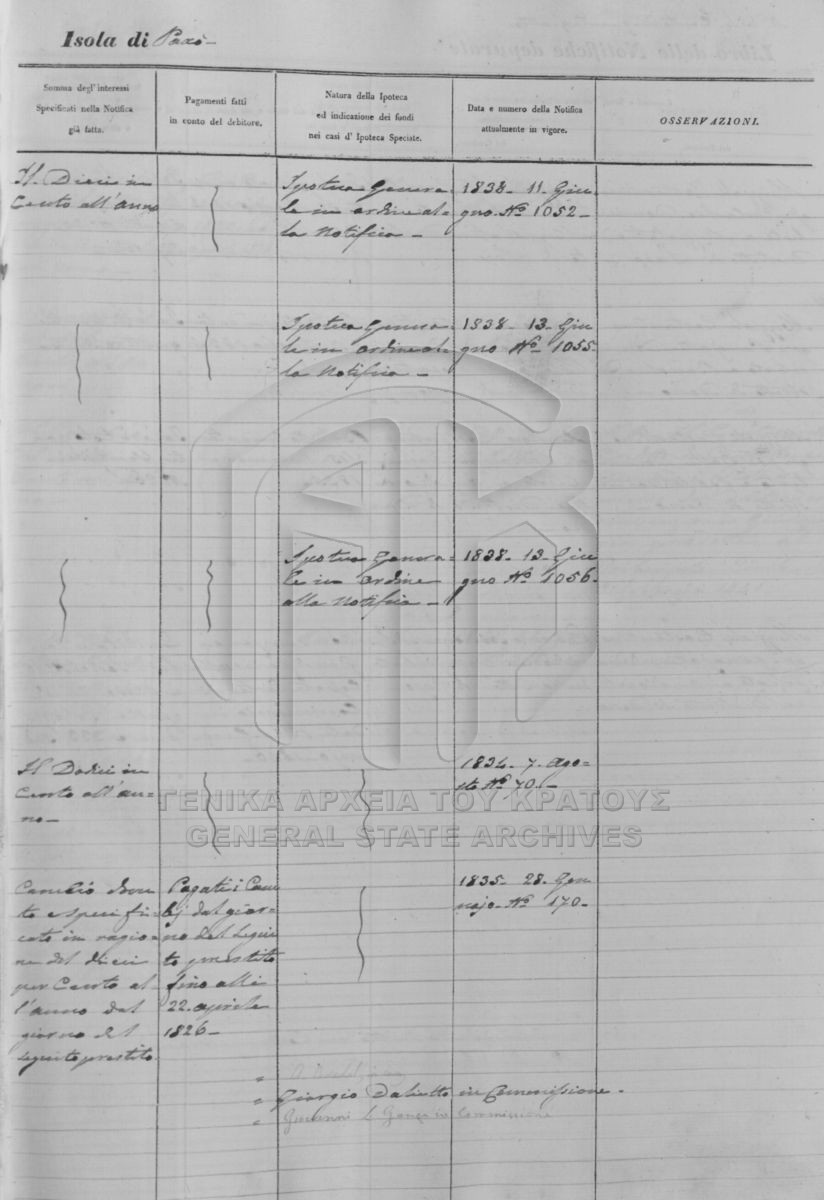 Isola di Paxò
Somma degl'interessi
Specificati nella Notifica
già fatta.
Pagamenti fatti
in conto del debitore.
Natura della Ipoteca
ed indicazione dei fondi
nei casi d' Ipoteca Speciate.
Data e numero della Notifica
attualmente in vigore.
OSSERVAZIONI.
Il Dieci in
Cento all'anno
Ipoteca Genera-
le in ordine al-
la Notifica -
1838 - 11. Giu
gno. No 1052 -
Ipoteca Genera-
le in ordine al-
la Notifica -
1838 - 13. Giu
gno No 1055 -
Ipoteca Genera=
le in ordine
alla Notifica -
1838 - 13. Giu
gno No 1056 -
Il Dodici in
Cento all'an=
no -
1834. 7. Ago=
sto No 70. -
ΓΕΝΙΚΑ ΑΡΧΕΙΑ ΤΟΥ ΚΡΑΤΟΥΣ
GENERAL STATE ARCHIVES
Cambio dovu
to e specifi
cato in ragio=
ne del dieci
per Cento al
l'anno dal
giorno del
seguito prestito.
Pagati i Cam
bj dal gior=
no del segui
to prestito
fino alli
22. aprile
1826 -
1835 - 28. Gen
najo - No 170 -
Giorgio in Commissione.
Giovanni in Commissione